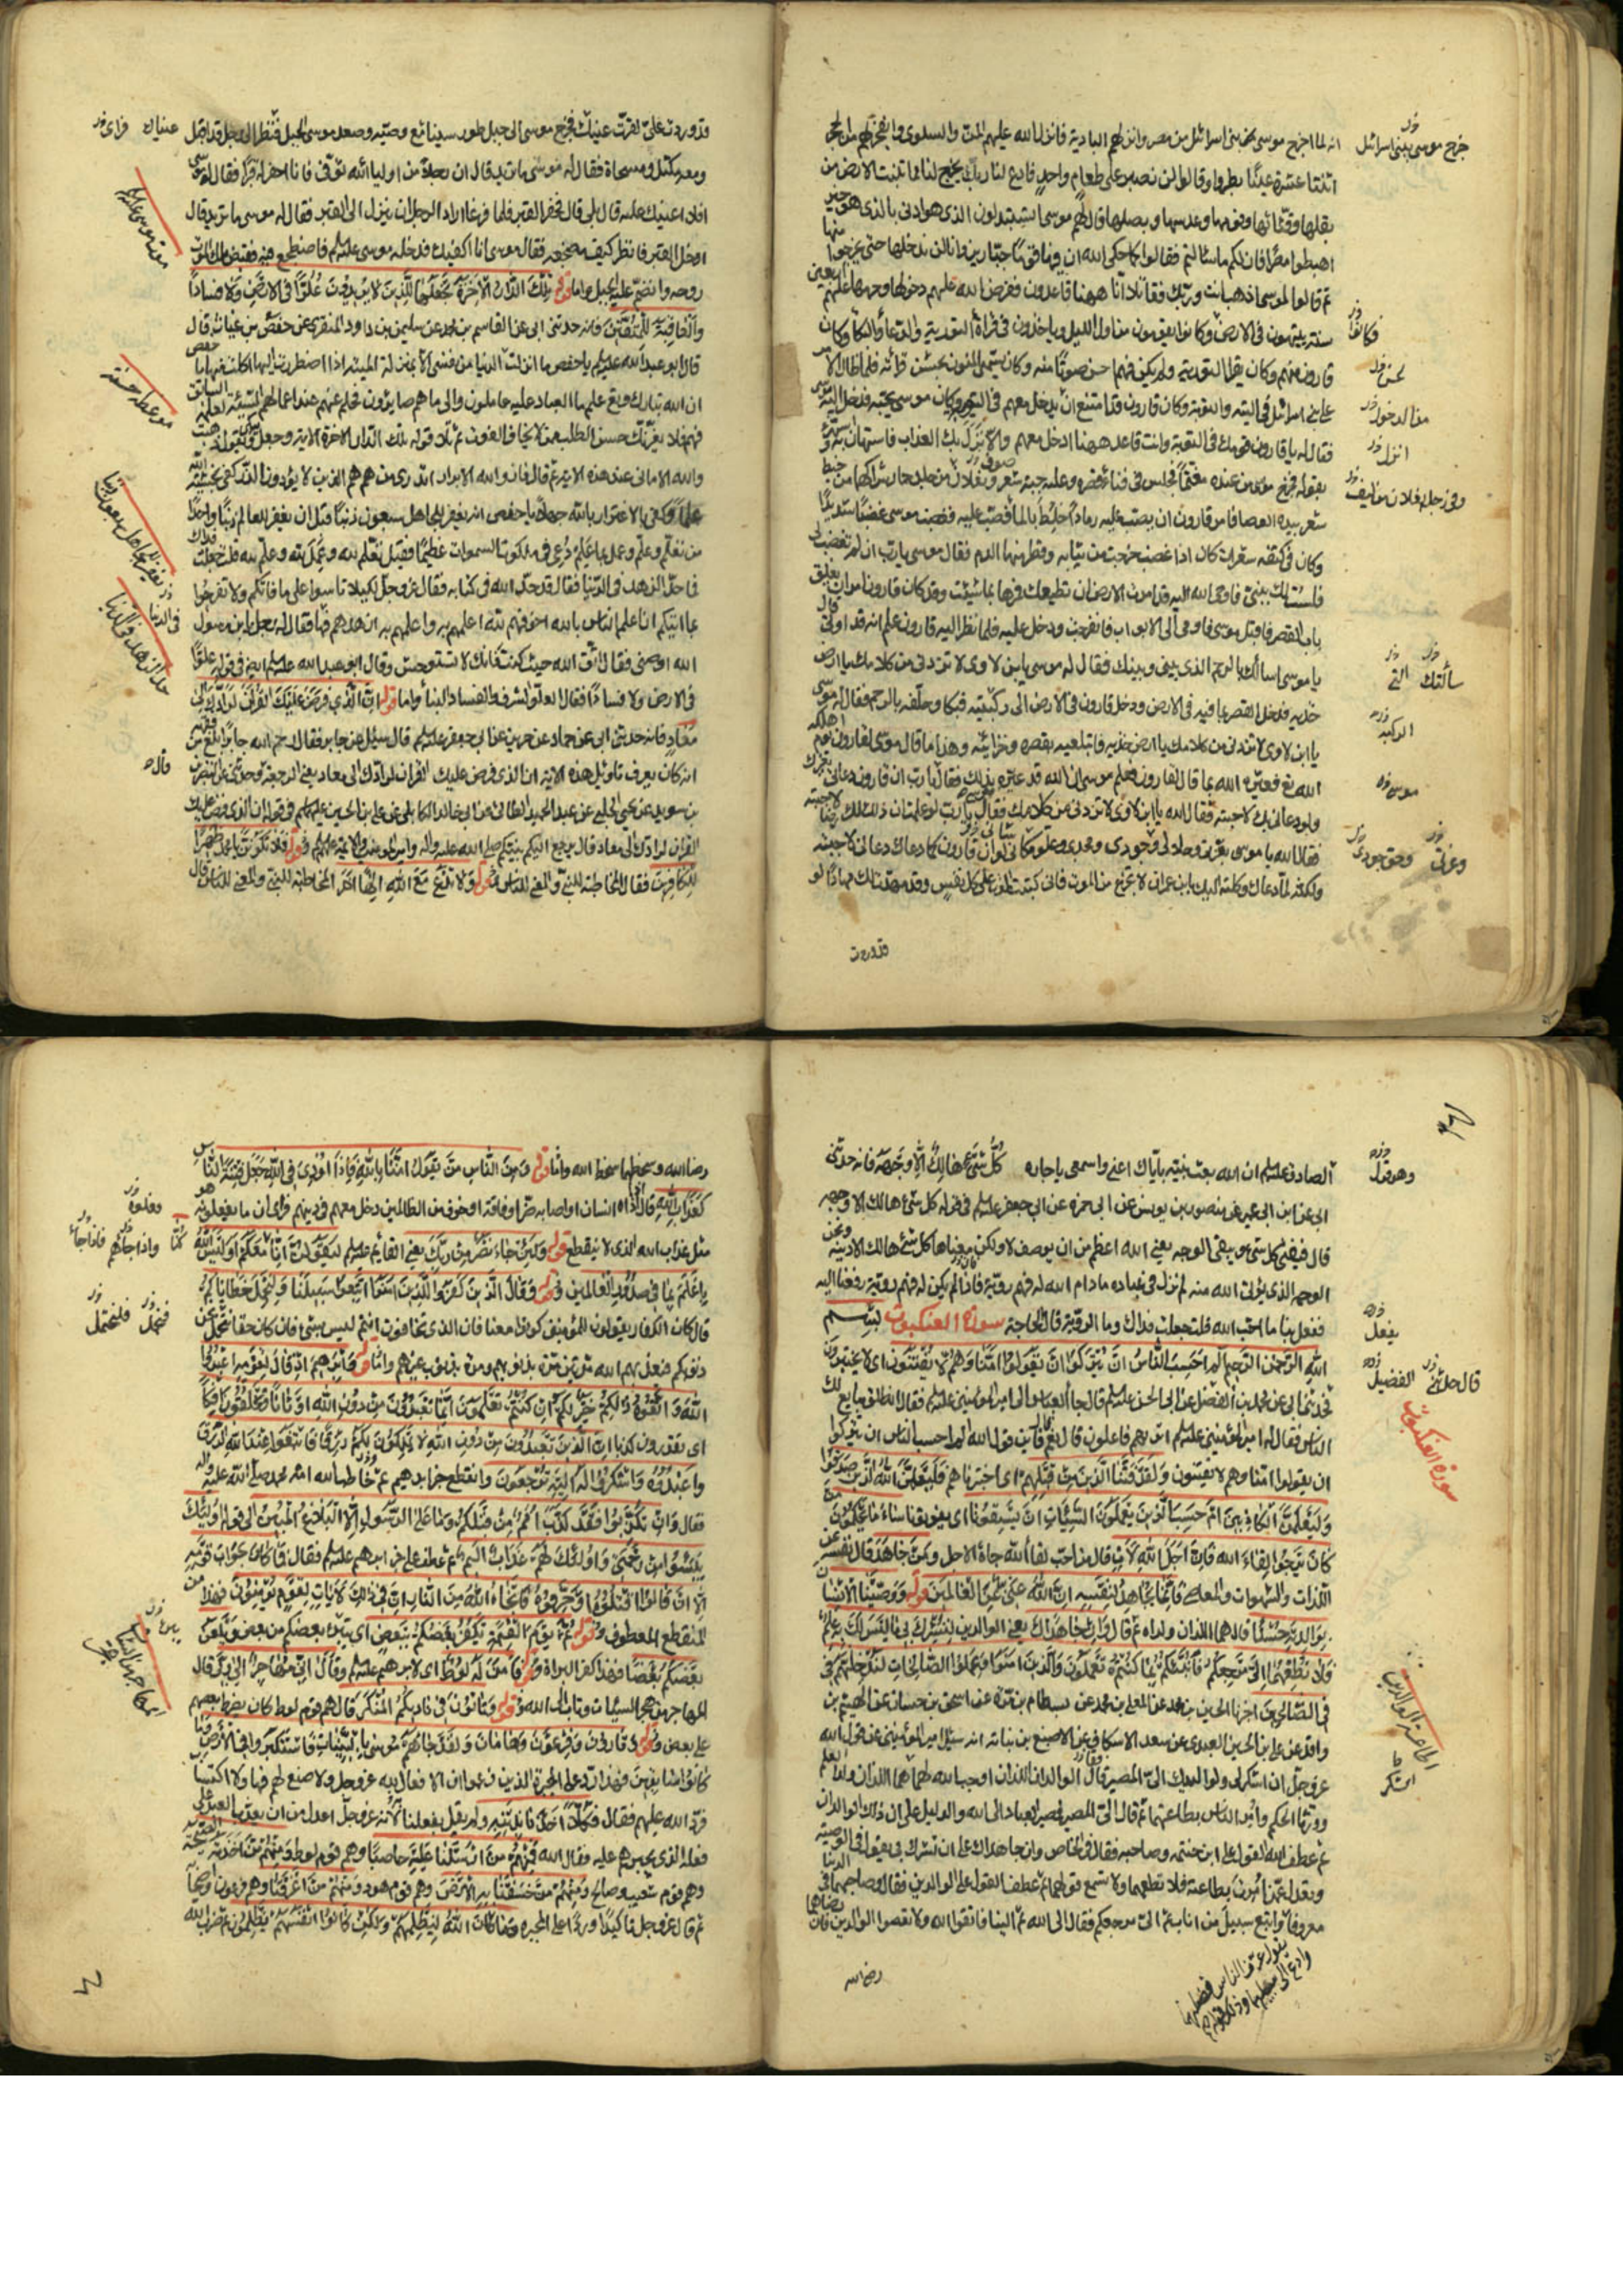 انه لما اخرج موسى بنى اسرائيل من مصر وانزلهم البادية فانزل الله عليهم المن والسلوى وانفجر لهم من الحجر
اثنتا عشرة عينا بطروا وقالوا لن نصبر على طعام واحد فادع لنا ربك يخرج لنا مما تنبت الارض من
بقلها وقثائها وفومها وعدسها وبصلها قال لهم موسى اتستبدلون الذى هو ادنى بالذى هو خير
اهبطوا مصرا فان لكم ما سالتم فقالوا كما حكى الله ان فيها قوما جبارين وانا لن ندخلها حتى يخرجوا منها
ثم قالوا لموسى اذهب انت وربك فقاتلا انا ههنا قاعدون ففرض الله عليهم دخولها وحرمها عليهم اربعين
سنة يتيهون فى الارض وكانوا يقومون من اول الليل وياخذون فى قراءة التورية والدعاء والبكا وكان
قارون منهم وكان يقرا التورية ولم يكن فيهم احسن صوتا منه وكان يسمى المنون بحسن قرائته فلما طال الامر
على بنى اسرائيل فى التيه والتوبة وكان قارون قد امتنع ان يدخل معهم فى التوبة وكان موسى يحبه فدخل اليه موسى
فقال له يا قارون قومك فى التوبة وانت قاعد ههنا ادخل معهم والا نزل بك العذاب فاستهان به
بقوله فخرج موسى من عنده مغتما فجلس فى فناء قصره وعليه جبة شعر ونعلان من جلد حمار شراكهما من خيط
شعر بيده العصا فامر قارون ان يصب عليه رمادا خلط بالماء فصب عليه فغضب موسى غضبا شديدا
وكان فى كتفه شعرات كان اذا غضب خرجت من ثيابه وقطر منها الدم فقال موسى يا رب ان لم تغضب لى
فلست لك بنبى فاوحى الله اليه قد امرت الارض ان تطيعك فمرها بما شئت وقد كان قارون امر ان يغلق
باب القصر فاقبل موسى فاومى الى الابواب فانفرجت ودخل عليه فلما نظر اليه قارون علم انه قد اوتى قال
يا موسى اسالك بالرحم الذى بينى وبينك فقال له موسى يابن لاوى لا تزدنى من كلامك يا ارض
خذيه فدخل القصر بما فيه فى الارض ودخل قارون فى الارض الى ركبتيه فبكا وحلفه بالرحم فقال له موسى
يا ابن لاوى لا تزدنى من كلامك يا ارض خذيه فابتلعيه بقصره وخزائنه وهذا ما قال موسى لقارون يوم اهلكه
الله فعيره الله بما قال لقارون فعلم موسى ان الله قد عيره بذلك فقال يا رب ان قارون دعانى بغيرك
ولو دعانى بك لاجبته فقال الله يا ابن لاوى لا تزدنى من كلامك فقال يا رب لو علمت ان ذلك لك رضا لاجبته
فقال الله يا موسى بعزتى وجلالى وجودى ومجدى وعلو مكانى لو ان قارون كما دعاك دعانى لاجبته
ولكنه لما دعاك وكلته اليك يابن عمران لا تجزع من الموت فانى كتبت الموت على كل نفس وقد مهدت لك مهادا لو
قد وردت
خرج موسى ببنى اسرائيل
فكانوا
انزل
سالتك
موسى
قد وردت عليه لقرت عيناك فخرج موسى الى جبل طور سينا مع وصيه وصعد موسى الجبل فنظر الى رجل قد اقبل
ومعه مكتل ومسحاة فقال له موسى ما تريد قال ان رجلا من اولياء الله توفى فانا احفر له قبرا فقال له موسى
افلا اعينك عليه قال بلى قال فحفرا القبر فلما فرغا اراد الرجل ان ينزل الى القبر فقال له موسى ما تريد قال
ادخل القبر فانظر كيف مضجعه فقال موسى انا اكفيك فدخله موسى عليه السلم فاضطجع فيه فقبض ملك الموت
روحه وانضم عليه الجبل واما قوله تلك الدار الاخرة نجعلها للذين لا يريدون علوا فى الارض ولا فسادا
والعاقبة للمتقين فانه حدثنى ابى عن القاسم بن محمد عن سليمن بن داود المنقرى عن حفص بن غياث قال
قال ابو عبد الله عليه السلم يا حفص ما انزلت الدنيا من نفسى الا بمنزلة الميتة اذا اضطررت اليها اكلت منها يا حفص
ان الله تبارك وتع علم ما العباد عليه عاملون والى ما هم صايرون فحلم عنهم عند اعمالهم السيئة لعلمه السابق
فيهم فلا يغرنك حسن الطلب ممن لا يخاف الفوت ثم تلا قوله تلك الدار الاخرة الاية وجعل يبكى ويقول ذهبت
والله الامانى عند هذه الاية ثم قال فاز والله الابرار اتدرى من هم هم الذين لا يؤذون الذر كفى بخشية الله
علما وكفى بالاغترار بالله جهلا يا حفص انه يغفر للجاهل سبعون ذنبا قبل ان يغفر للعالم ذنبا واحدا
من تعلم وعلم وعمل بما علم دعى فى ملكوت السموات عظيما فقيل تعلم لله وعمل لله وعلم لله قلت جعلت فداك
فما حد الزهد فى الدنيا فقال قد حد الله فى كتابه فقال عز وجل لكيلا تاسوا على ما فاتكم ولا تفرحوا
بما اتيكم ان اعلم الناس بالله اخوفهم لله اعلمهم به واعلمهم به ازهدهم فيها فقال له رجل يابن رسول
الله اوصنى فقال اتق الله حيث كنت فانك لا تستوحش وقال ابو عبد الله عليه السلم ايضا فى قوله علوا
فى الارض ولا فسادا فقال العلو الشرف والفساد البنا واما قوله ان الذى فرض عليك القران لرادك الى
معاد فانه حدثنى ابى عن حماد عن حريز عن ابى جعفر عليه السلم قال سئل عن جابر فقال رحم الله جابرا بلغ من فقهه
انه كان يعرف تاويل هذه الاية ان الذى فرض عليك القران لرادك الى معاد يعنى الرجعة وحدثنى ابى عن النضر
بن سويد عن يحيى الحلبى عن عبد الحميد الطائى عن ابى خالد الكابلى عن على بن الحسين عليهما السلم فى قوله ان الذى فرض عليك
القران لرادك الى معاد قال يرجع اليكم نبيكم صلى الله عليه واله وامير المؤمنين والائمة عليهم السلم وقوله فلا تكونن يا محمد ظهيرا
للكافرين فقال المخاطبة للنبى والمعنى للناس وقوله ولا تدع مع الله الها اخر المخاطبة للنبى والمعنى للناس قال
موعظه حسنة
حد الزهد فى الدنيا
الصادق عليه السلم ان الله بعث نبيه باياك اعنى واسمعى يا جاره كل شئ هالك الا وجهه فانه حدثنى
ابى عن ابن ابى عمير عن منصور بن يونس عن ابى حمزه عن ابى جعفر عليه السلم فى قوله كل شئ هالك الا وجهه
قال فيفنى كل شئ ويبقى الوجه يعنى الله اعظم من ان يوصف لا ولكن معناها كل شئ هالك الا دينه ونحن
الوجه الذى يؤتى الله منه لم نزل فى عباده ما دام الله له فيهم روية فاذا لم يكن له فيهم روية رفعنا اليه
ففعل بنا ما احب الله قلت جعلت فداك وما الروية قال الحاجة سورة العنكبوت بسم
الله الرحمن الرحيم الم احسب الناس ان يتركوا ان يقولوا امنا وهم لا يفتنون اى لا يختبرون
فحدثنى ابى عن محمد بن الفضل عن ابى الحسن عليه السلم قال جاء العباس الى امير المؤمنين عليه السلم فقال انطلق يبايع لك
الناس فقال له امير المؤمنين عليه السلم اتريهم فاعلون قال نعم قال فاين قول الله الم احسب الناس ان يتركوا
ان يقولوا امنا وهم لا يفتنون ولقد فتنا الذين من قبلهم اى اختبرناهم فليعلمن الله الذين صدقوا
وليعلمن الكاذبين ام حسب الذين يعملون السيئات ان يسبقونا اى يفوتونا ساء ما يحكمون من
كان يرجوا لقاء الله فان اجل الله لات قال من احب لقاء الله جاءه الاجل ومن جاهد قال نفسه عن
اللذات والشهوات والمعاصى فانما يجاهد لنفسه ان الله غنى عن العالمين قوله ووصينا الانسان
بوالديه حسنا قال هما اللذان ولداه ثم قال وان جاهداك يعنى الوالدين لتشرك بى ما ليس لك به علم
فلا تطعهما الى مرجعكم فانبئكم بما كنتم تعملون والذين امنوا وعملوا الصالحات لندخلنهم
فى الصالحين اخبرنا الحسين بن محمد عن المعلى بن محمد عن بسطام بن مرة عن اسحق بن حسان عن الهيثم بن
واقد عن على بن الحسين العبدى عن سعد الاسكاف عن الاصبغ بن نباته انه سئل امير المؤمنين عن قول الله
عز وجل ان اشكر لى ولوالديك الى المصير قال الوالدان اللذان اوجب الله لهما هما اللذان ولدا العلم
وورثا الحكم وامر الناس بطاعتهما ثم قال الى المصير فمصير العباد الى الله والدليل على ان ذلك الوالدان
ثم عطف الله القول على ابن حنتمه وصاحبه فقال فى الخاص وان جاهداك على ان تشرك بى يقول فى الوصية
وتعدل عمن امرت بطاعته فلا تطعهما ولا تسمع قولهما ثم عطف القول على الوالدين فقال وصاحبهما فى الدنيا
معروفا واتبع سبيل من اناب الى ثم الى مرجعكم فقال الى الله ثم الينا فاتقوا الله ولا تعصوا الوالدين فان رضاهما
رضا الله
وهو قول
يفعل
قال حدثنى
الفضيل
سورة العنكبوت
رضا الله وسخطهما سخط الله واما قوله ومن الناس من يقول امنا بالله فاذا اوذى فى الله جعل فتنة الناس
كعذاب الله قال اذا اذاه انسان او اصابه ضر او فاقة او خوف من الظالمين دخل معهم فى دينهم فراى ان ما يفعلونه هو
مثل عذاب الله الذى لا ينقطع قوله ولئن جاء نصر من ربك يعنى القايم عليه السلم ليقولن انا كنا معكم اوليس الله
باعلم بما فى صدور العالمين قوله وقال الذين كفروا للذين امنوا اتبعوا سبيلنا ولنحمل خطاياكم
قال كان الكفار يقولون للمؤمنين كونوا معنا فان الذى تخافون انتم ليس بشئ فان كان حقا نتحمل نحن
ذنوبكم فيعذبهم الله مرتين مرة بذنوبهم ومرة بذنوب غيرهم واما قوله وابرهيم اذ قال لقومه اعبدوا
الله واتقوه ذلكم خير لكم ان كنتم تعلمون انما تعبدون من دون الله اوثانا وتخلقون افكا
اى تقدرون كذبا ان الذين تعبدون من دون الله لا يملكون لكم رزقا فابتغوا عند الله الرزق
واعبدوه واشكروا له اليه ترجعون وانقطع خبر ابرهيم ثم خاطب الله امة محمد صلى الله عليه واله
فقال وان تكذبوا فقد كذب امم من قبلكم وما على الرسول الا البلاغ المبين الى قوله اولئك
يئسوا من رحمتى واولئك لهم عذاب اليم ثم عطف على خبر ابرهيم عليه السلم فقال فما كان جواب قومه
الا ان قالوا اقتلوه او حرقوه فانجاه الله من النار ان فى ذلك لايات لقوم يؤمنون فهذا من
المنقطع المعطوف وقوله ثم يوم القيمة يكفر بعضكم ببعض اى يتبرء بعضكم من بعض ويلعن
بعضكم بعضا فهذا كفر البراءة وقوله فامن له لوط اى لابرهيم عليه السلم وقال انى مهاجر الى ربى قال
المهاجر من هجر السيئات وتاب الى الله وقوله وتاتون فى ناديكم المنكر قال هم قوم لوط كان يضرط بعضهم
على بعض وقوله وقارون وفرعون وهامان ولقد جاءهم موسى بالبينات فاستكبروا فى الارض وما
كانوا سابقين فهذا رد على المجبرة الذين زعموا ان الافعال لله عز وجل ولا صنع لهم فيها ولا اكتساب
فرد الله عليهم فقال فكلا اخذنا بذنبه ولم يقل بفعلنا لانه عز وجل اعدل من ان يعذب العبد على
فعله الذى يجبرهم عليه فقال الله فمنهم من ارسلنا عليه حاصبا وهم قوم لوط ومنهم من اخذته الصيحة
وهم قوم شعيب وصالح ومنهم من خسفنا به الارض وهم قوم هود ومنهم من اغرقنا وهم فرعون واصحابه
ثم قال عز وجل تاكيدا وردا على المجبره وما كان الله ليظلمهم ولكن كانوا انفسهم يظلمون ثم ضرب الله